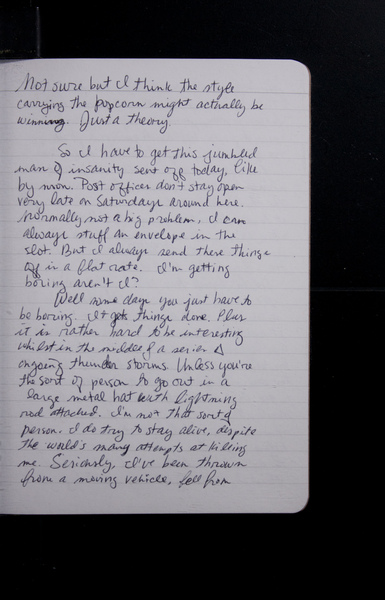 Not sure but I think the style
carrying the popcorn might actually be
winning. Just a theory.
So I have to get this jumbled
man of insanity sent off today, like
by noon. Post offices don't stay open
very late on Saturdays around here.
Normally not a big problem, I can
always stuff an envelope in the
slot. But I always send these things
off in a flat rate. I'm getting
boring aren't I?
Well some days you just have to
be boring. It gets things done. Plus
it is rather hard to be interesting
whilst in the middle of a series
ongoing thunder storms. Unless you're
the sort of person to go out in a
large metal hat with lightning
rod attached. I'm not that sort of
person. I do try to stay alive, despite
the world's many attempts at killing
me. Seriously, I've been thrown
from a moving vehicle, fell from